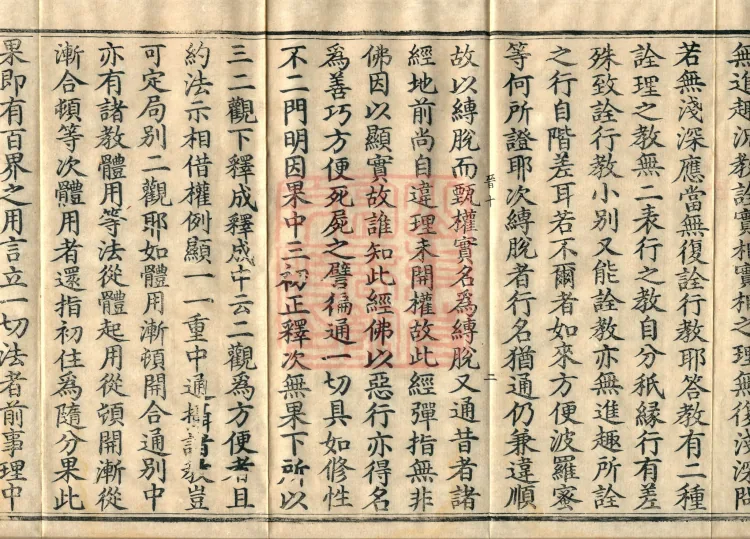 無進趣況教詮實相實相之理無復淺深問
若無淺深應當無復詮行教耶答教有二種
詮理之教無二表行之教自分秖緣行有差
殊致詮行教小別又能詮教亦無進趣所詮
之行自階差耳若不爾者如來方便波羅蜜
等何所證耶次縛脫者行名猶通仍兼違順
故以縛脫而甄權實名為縛脫又通昔者諸
經地前尚自違理未開權故此經彈指無非
佛因以顯實故誰知此經佛以惡行亦得名
為善巧方便死屍之譬徧通一切具如修性
不二門明因果中三初正釋次無果下所以
三二觀下釋成釋成中云二觀為方便者且
約法示相借權例顯一一重中通諸教豈
可定局別二觀耶如體用漸頓開合通別中
亦有諸教體用等法從體起用從頓開漸從
漸合頓等次體用者還指初住為隨分果此
果即有百界之用言立一切法者前事理中
晉十
二